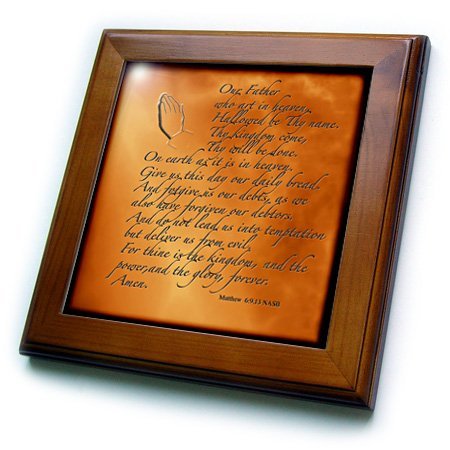 Our Father
who art in heaven,
Hallowed be Thy name.
Thy kingdom come,
Thy will be done.
On earth as it is in heaven.
Give us this day our daily bread.
And forgive us our debts, as we
also have forgiven our debtors.
And do not lead us into temptation
but deliver us from evil.
For thine is the kingdom, and the
power,and the glory, forever.
Amen.
Matthew 6:9.13 NASB